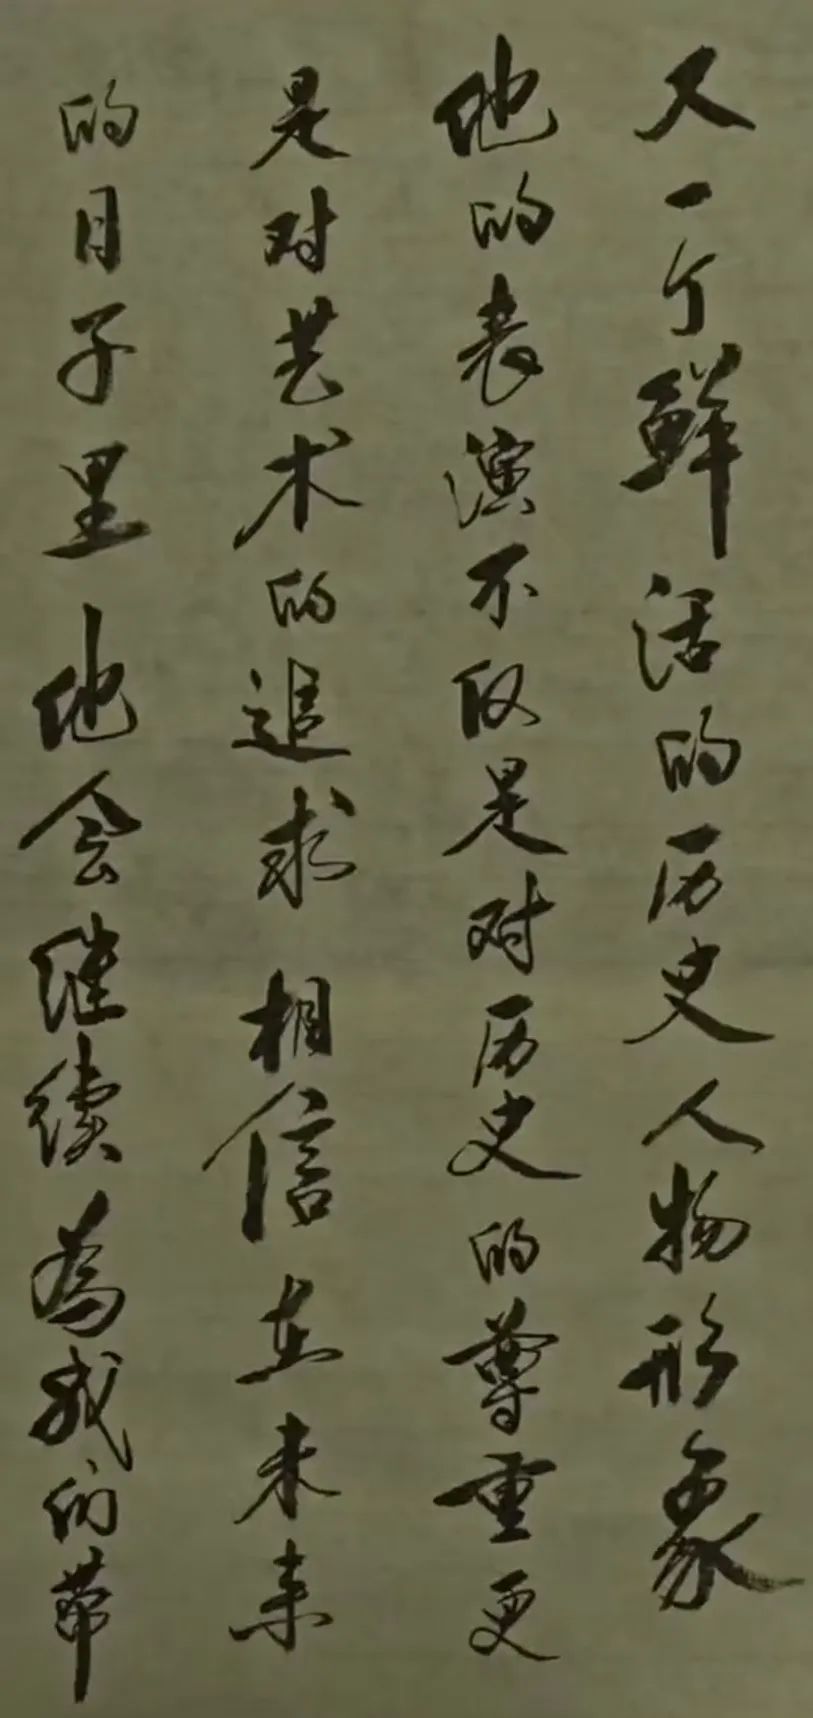 又一个鲜活的历史人物形象
他的表演不仅是对历史的尊重更
是对艺术的追求相信在未来
的日子里他会继续為我们带